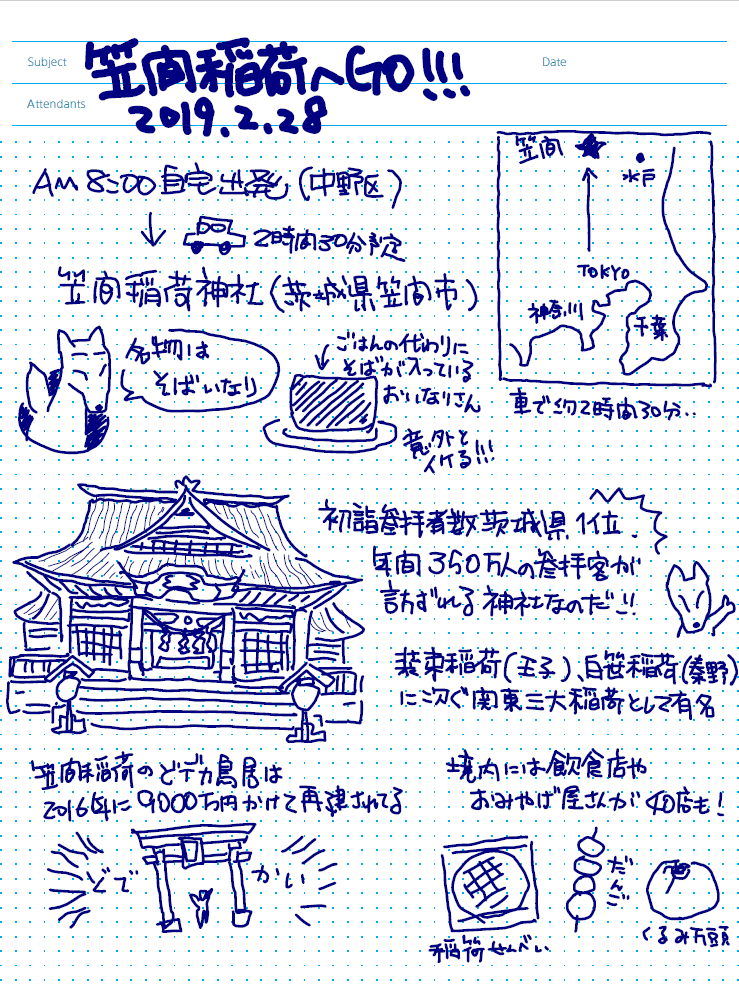 Subject
笠間稲荷へGO!!!
Date
Attendants
2019.2.28
AM 8:00 自宅出発 (中野区)
2時間30分予定
笠間稲荷神社 (茨城県笠間市)
笠間
水戸
TOKYO
神奈川
千葉
車で約2時間30分..
名物は
そばいなり
ごはんの代わりに
そばが入っている
おいなりさん
意外と
イケる!!!
初詣参拝者数茨城県1位.
年間350万人の参拝客が
訪ずれる神社なのだ!!
装束稲荷(王子)、白笹稲荷(秦野)
に次ぐ関東三大稲荷として有名
笠間稲荷のどデカ鳥居は
2016年に9000万円かけて再建されてる
どで
かい
境内には飲食店や
おみやげ屋さんが40店も!
稲荷せんべい
だんご
くるみ万頭